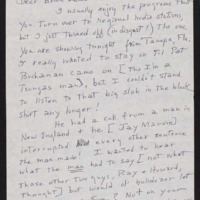 Dear
I usually enjoy the programs that
you turn over to regional media stations,
but I just turned off (in disgust!) the one
you are showing tonight from Tampa, Fla.
I really wanted to stay on til Pat
Buchanan came on [tho I'm a
Tsongas man], but I couldn't stand
to listen to that big slob in the black
shirt any longer!
He had a cat from a man in
New England & he [Jay Marvin]
interrupted every other sentence
the man made! I wanted to hear
what the man had to say [not what
those other two guys, Ray & Howard,
thought] but would
Not on your